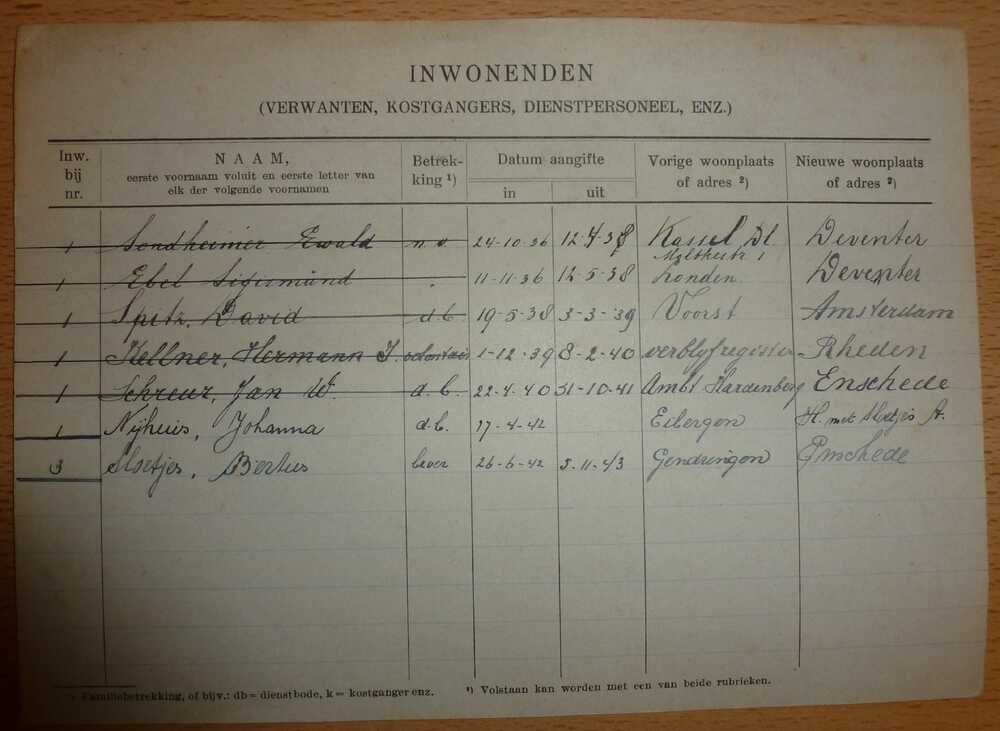 INWONENDEN
(VERWANTEN, KOSTGANGERS, DIENSTPERSONEEL, ENZ.)
Inw. bij nr. NAAM, eerste voornaam voluit en eerste letter van elk der volgende voornamen Betrek-king ¹) Datum aangifte in uit Vorige woonplaats of adres ²) Nieuwe woonplaats of adres ²)
1 Sondheimer Ewald n.v. 24-10-36 12-4-38 Kassel Dl. Deventer
Moltkestr 1
1 Ebel Sigismund 11-11-36 12-5-38 Londen Deventer
1 Spitz, David d.b. 19-5-38 3-3-39 Voorst Amsterdam
1 Kellner, Hermann J. 1-12-39 8-2-40 verblyfregister Rheden
1 Schreur, Jan W. d.b. 22-4-40 31-10-41 Ambt Hardenberg Enschede
1 Nijhuis, Johanna d.b. 17-4-42 Eibergen H. met Sloetjes A.
3 Sloetjes, Bertus broer 26-6-42 5-11-43 Gendringen Enschede
Familiebetrekking, of bijv.: db = dienstbode, k = kostganger enz. ²) Volstaan kan worden met een van beide rubrieken.